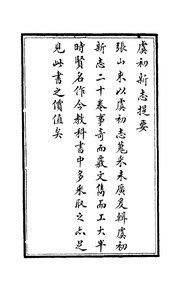 虞初新志提要
張山來以虞初志蒐采未廣爰輯虞初
新志二十卷事奇而覈文雋而工大半
時賢名作今教科書中多采取之亦足
見此書之價值矣